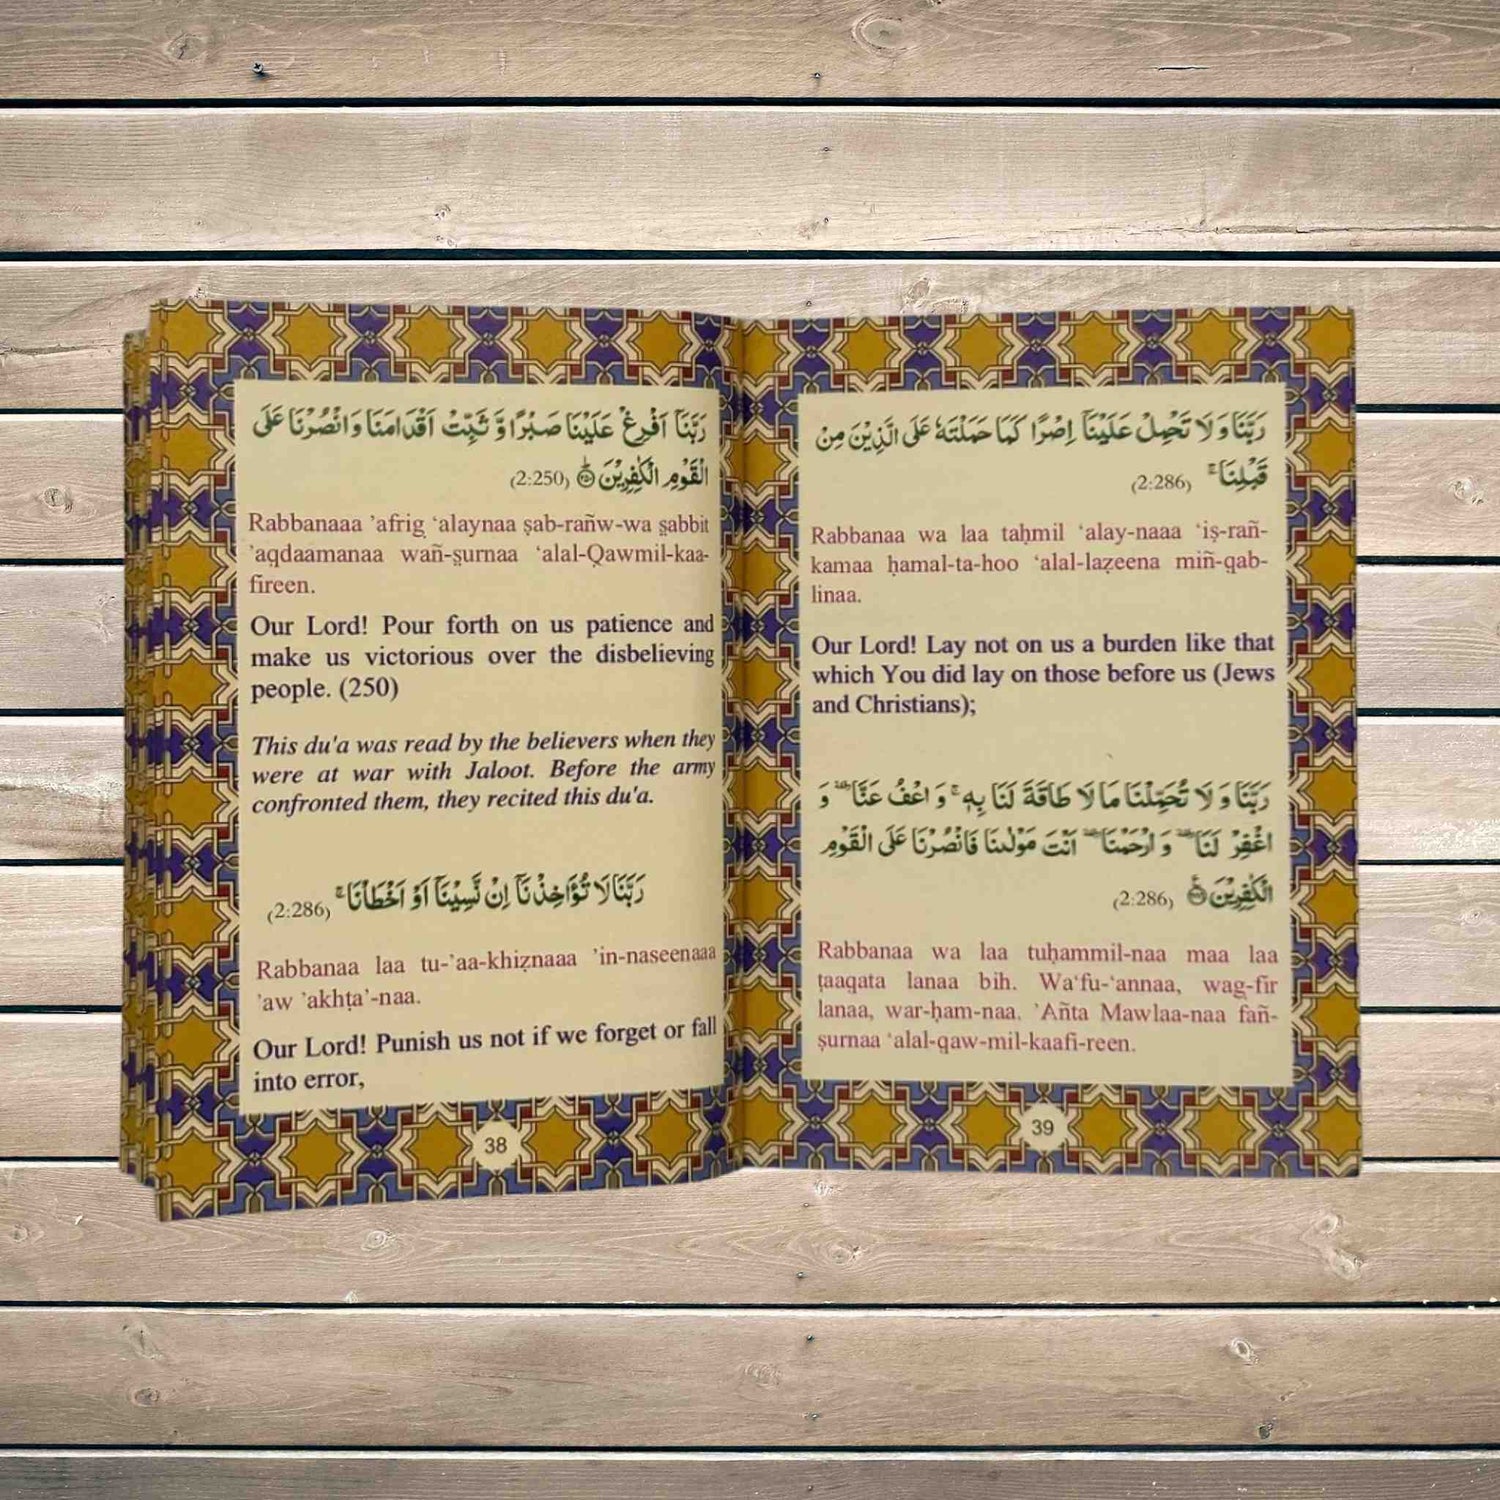 رَبَّنَآ اَفْرِغْ عَلَيْنَا صَبْرًا وَّ ثَبِّتْ اَقْدَامَنَا وَانْصُرْنَا عَلَى
الْقَوْمِ الْكٰفِرِيْنَ (2:250)
Rabbanaaa ’afrig ‘alaynaa ṣab-rañw-wa s̱abbit
’aqdaamanaa wañ-ṣurnaa ‘alal-Qawmil-kaa-
fireen.
Our Lord! Pour forth on us patience and
make us victorious over the disbelieving
people. (250)
This du'a was read by the believers when they
were at war with Jaloot. Before the army
confronted them, they recited this du'a.
رَبَّنَا لَا تُؤَاخِذْنَآ اِنْ نَّسِيْنَآ اَوْ اَخْطَاْنَا ۚ (2:286)
Rabbanaa laa tu-’aa-khiẓnaaa ’in-naseenaaa
’aw ’akhṭa’-naa.
Our Lord! Punish us not if we forget or fall
into error,
38
رَبَّنَا وَ لَا تَحْمِلْ عَلَيْنَآ اِصْرًا كَمَا حَمَلْتَهٗ عَلَى الَّذِيْنَ مِنْ
قَبْلِنَا ۚ (2:286)
Rabbanaa wa laa taḥmil ‘alay-naaa ‘iṣ-rañ-
kamaa ḥamal-ta-hoo ‘alal-laẓeena miñ-qab-
linaa.
Our Lord! Lay not on us a burden like that
which You did lay on those before us (Jews
and Christians);
رَبَّنَا وَ لَا تُحَمِّلْنَا مَا لَا طَاقَةَ لَنَا بِهٖ ۚ وَ اعْفُ عَنَّا ۥ وَ
اغْفِرْ لَنَا ۥ وَ ارْحَمْنَا ۥ اَنْتَ مَوْلٰىنَا فَانْصُرْنَا عَلَى الْقَوْمِ
الْكٰفِرِيْنَ (2:286)
Rabbanaa wa laa tuḥammil-naa maa laa
ṭaaqata lanaa bih. Wa‘fu-‘annaa, wag-fir
lanaa, war-ḥam-naa. ’Añta Mawlaa-naa fañ-
ṣurnaa ‘alal-qaw-mil-kaafi-reen.
39